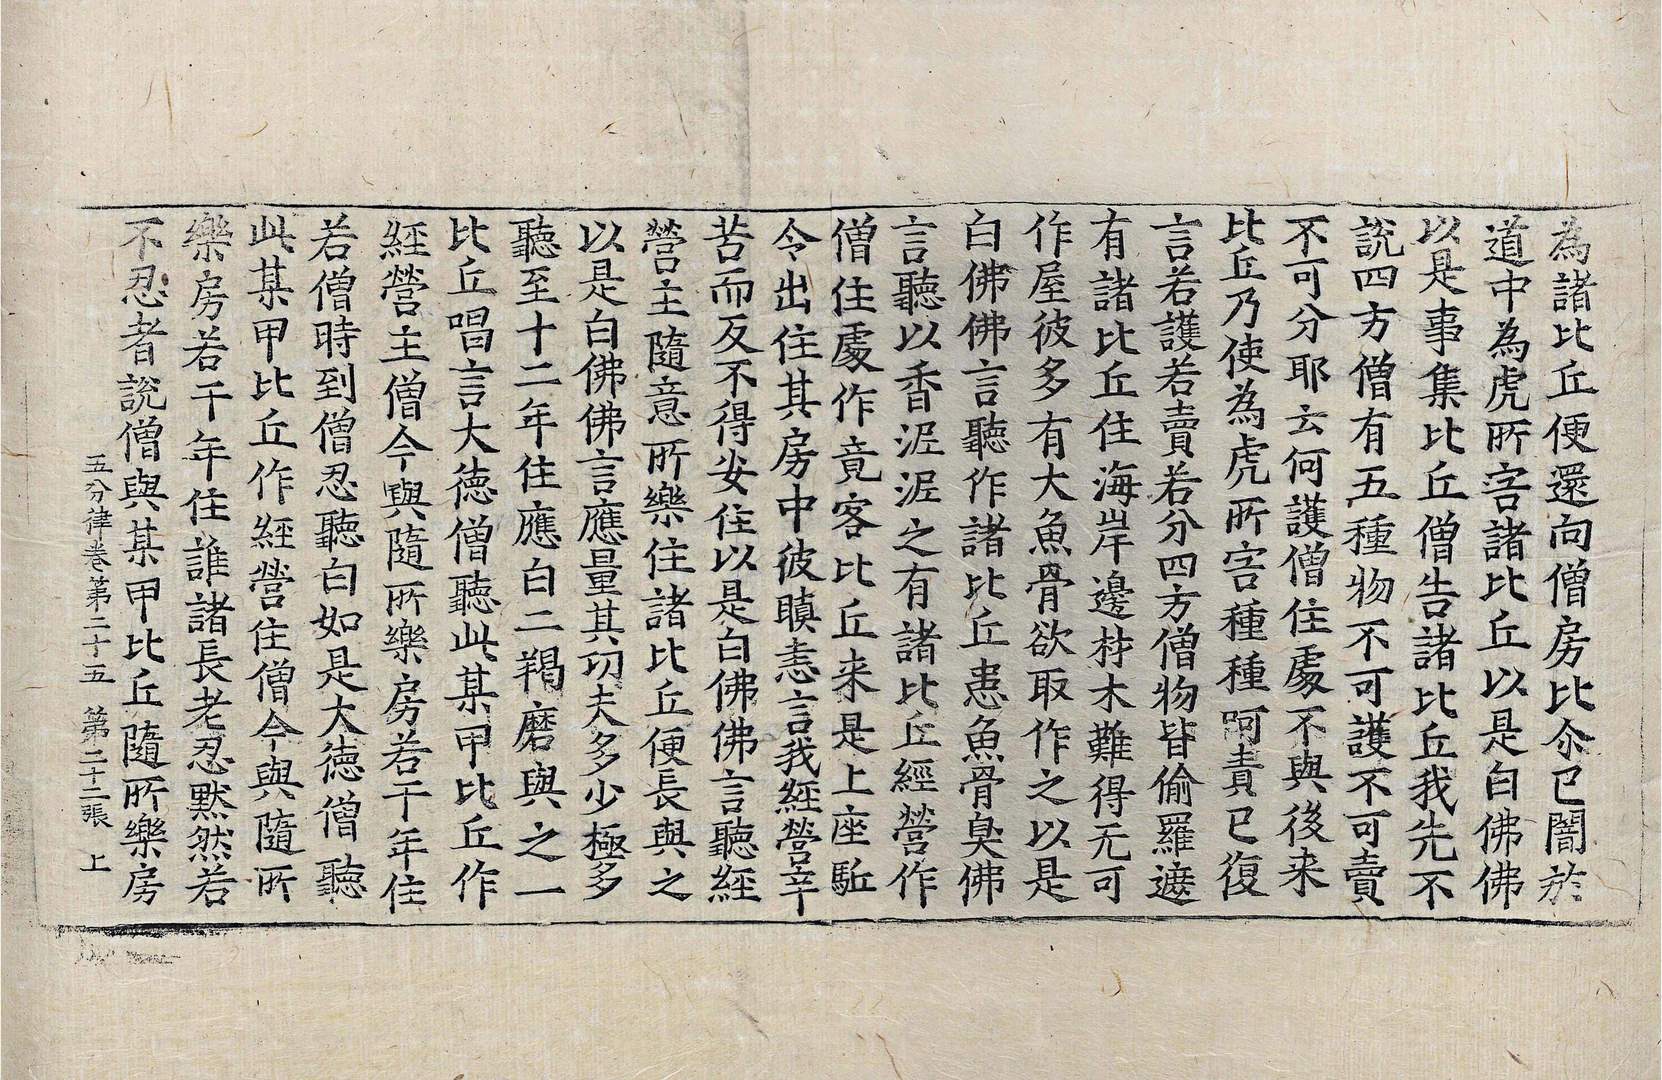 為諸比丘便還向僧房比尒已闇於
道中為虎所害諸比丘以是白佛佛
以是事集比丘僧告諸比丘我先不
說四方僧有五種物不可護不可賣
不可分耶云何護僧住處不與後来
比丘乃使為虎所害種種呵責已復
言若護若賣若分四方僧物皆偷羅遮
有諸比丘住海岸邊材木難得无可
作屋彼多有大魚骨欲取作之以是
白佛佛言聽作諸比丘患魚骨臭佛
言聽以香泥泥之有諸比丘經營作
僧住處作竟客比丘来是上座駈
令出住其房中彼瞋恚言我經營辛
苦而反不得安住以是白佛佛言聽經
營主隨意所樂住諸比丘便長與之
以是白佛佛言應量其功夫多少極多
聽至十二年住應白二羯磨與之一
比丘唱言大德僧聽此某甲比丘作
經營主僧今與隨所樂房若干年住
若僧時到僧忍聽白如是大德僧聽
此某甲比丘作經營住僧今與隨所
樂房若干年住誰諸長老忍默然若
不忍者說僧與某甲比丘隨所樂房
五分律卷第二十五 第二十二張 上